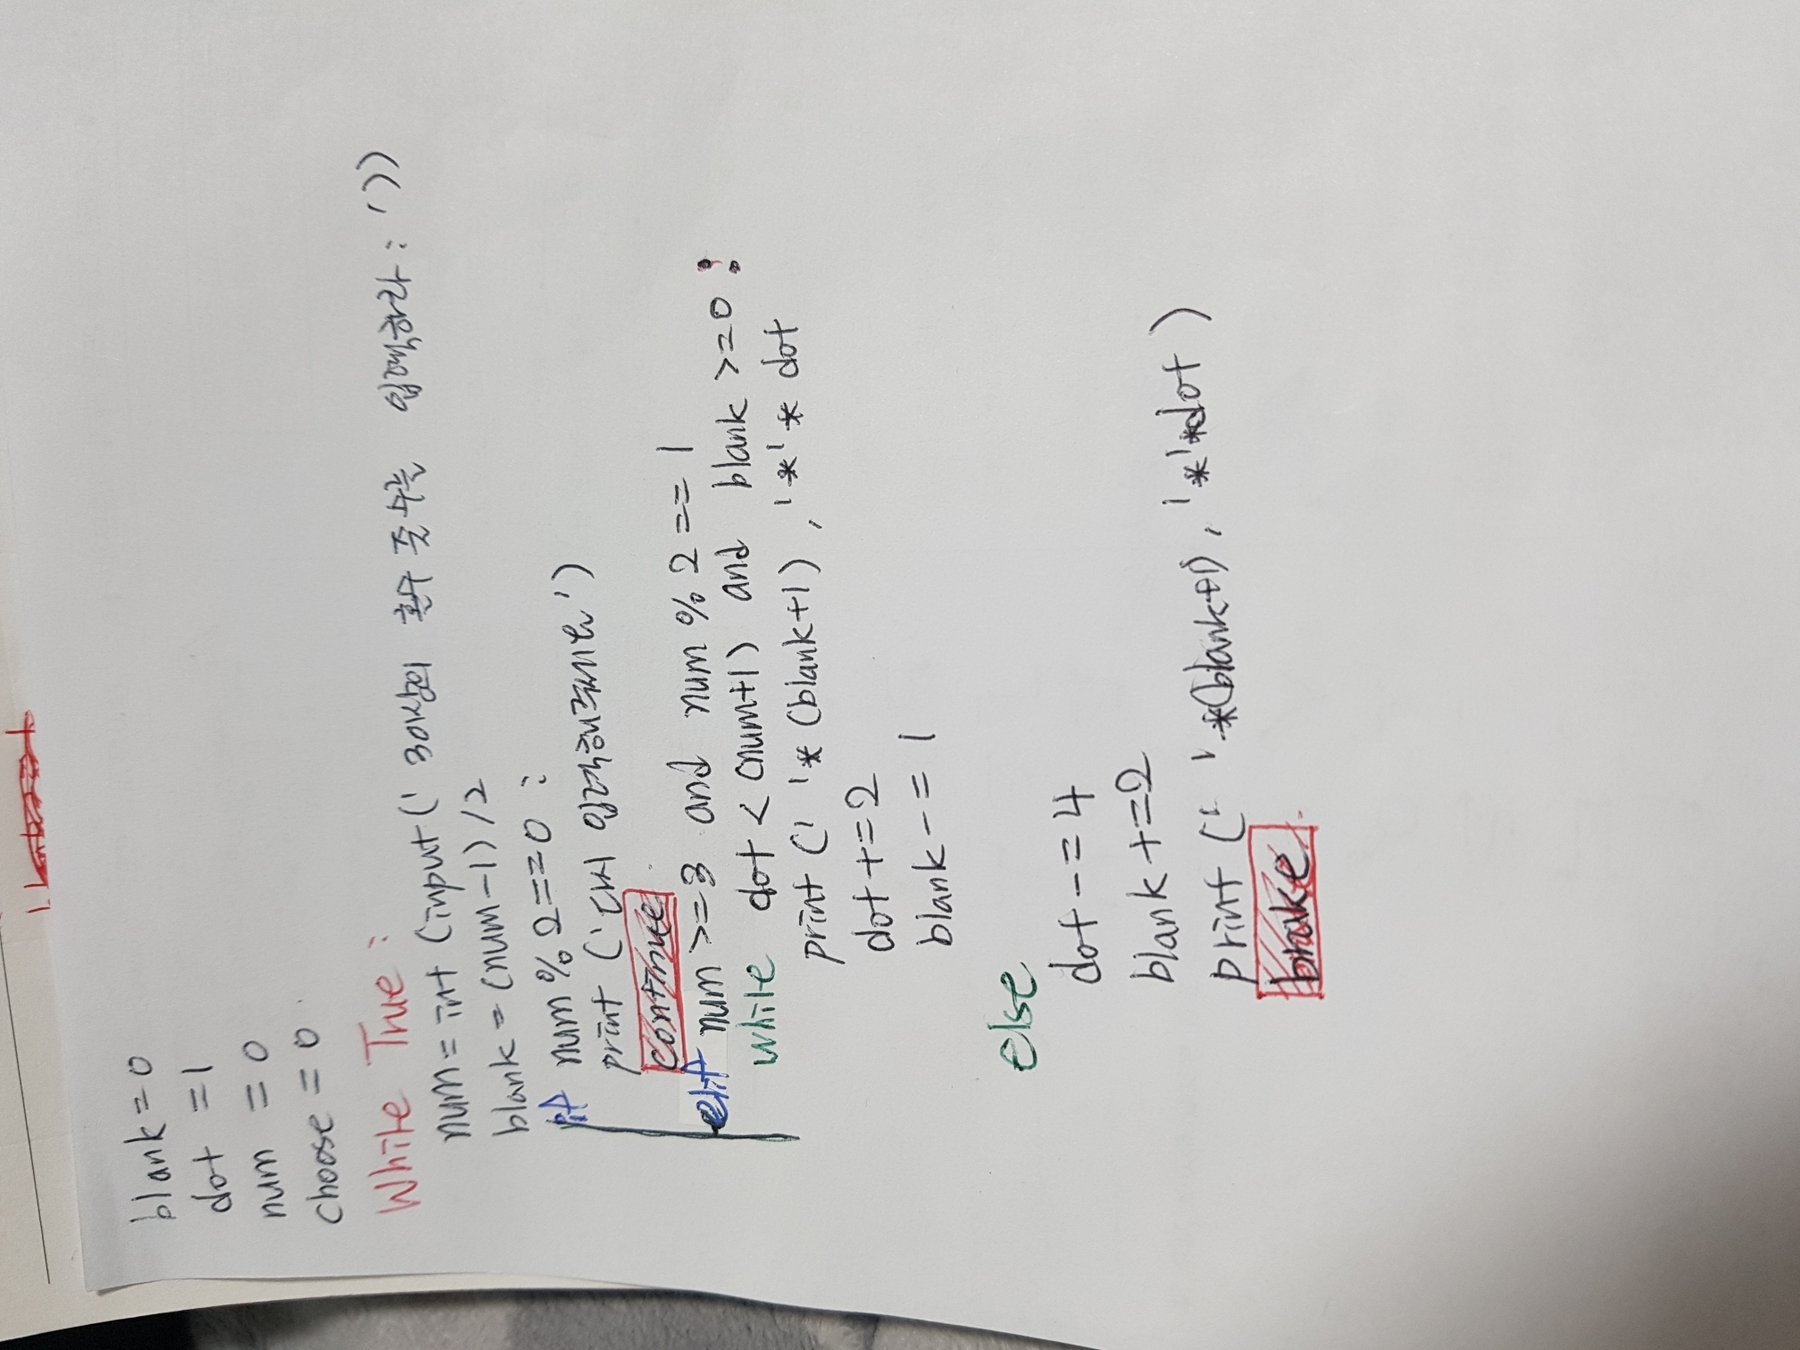 blank = 0
dot = 1
num = 0
choose = 0
While True :
num = int (input(' 3이상의 홀수 줄 수를 입력하라 : '))
blank = (num-1)/2
if num % 2 == 0 :
print ('다시 입력해주세요')
continue
elif num >= 3 and num % 2 == 1
while dot < (num+1) and blank >= 0 :
print (' '*(blank+1), '*'* dot
dot += 2
blank -= 1
else
dot -= 4
blank += 2
print (' '*(blank+1), '*'*dot)
brake